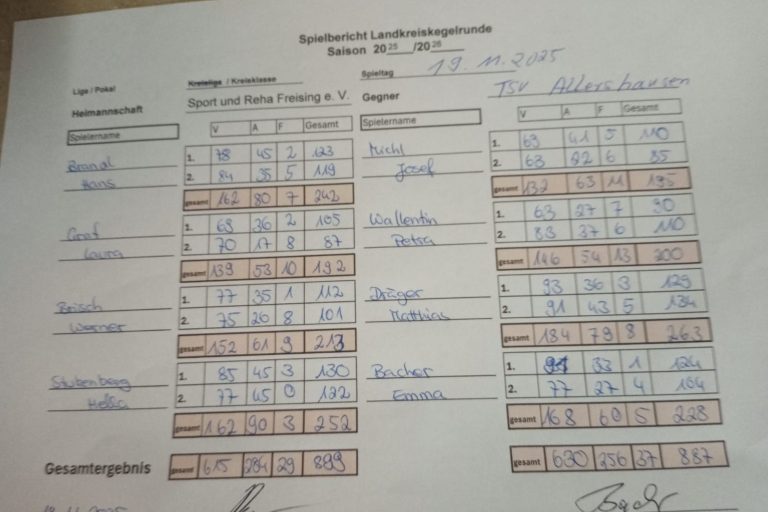 Spielbericht Landkreiskegelrunde
Saison 2025/2026
Liga / Pokal Kreisliga / Kreisklasse Spieltag 19.11.2025
Heimannschaft Sport und Reha Freising e. V. Gegner TSV Allershausen
Spielername V A F Gesamt Spielername V A F Gesamt
Brandl 1. 78 45 2 123 Michl 1. 69 41 5 110
Hans 2. 84 35 5 119 Josef 2. 63 22 6 85
gesamt 162 80 7 242 gesamt 132 63 11 195
Graf 1. 69 36 2 105 Wallentin 1. 63 27 7 90
Laura 2. 70 17 8 87 Petra 2. 83 27 6 110
gesamt 139 53 10 192 gesamt 146 54 13 200
Brisch 1. 77 35 1 112 Dräger 1. 93 36 3 129
Werner 2. 75 26 8 101 Matthias 2. 91 43 5 134
gesamt 152 61 9 213 gesamt 184 79 8 263
Stubenberg 1. 85 45 3 130 Bacher 1. 91 33 1 124
2. 77 45 0 122 Emma 2. 77 27 4 104
gesamt 162 90 3 252 gesamt 168 60 5 228
Gesamtergebnis gesamt 615 284 29 899 gesamt 630 256 37 887